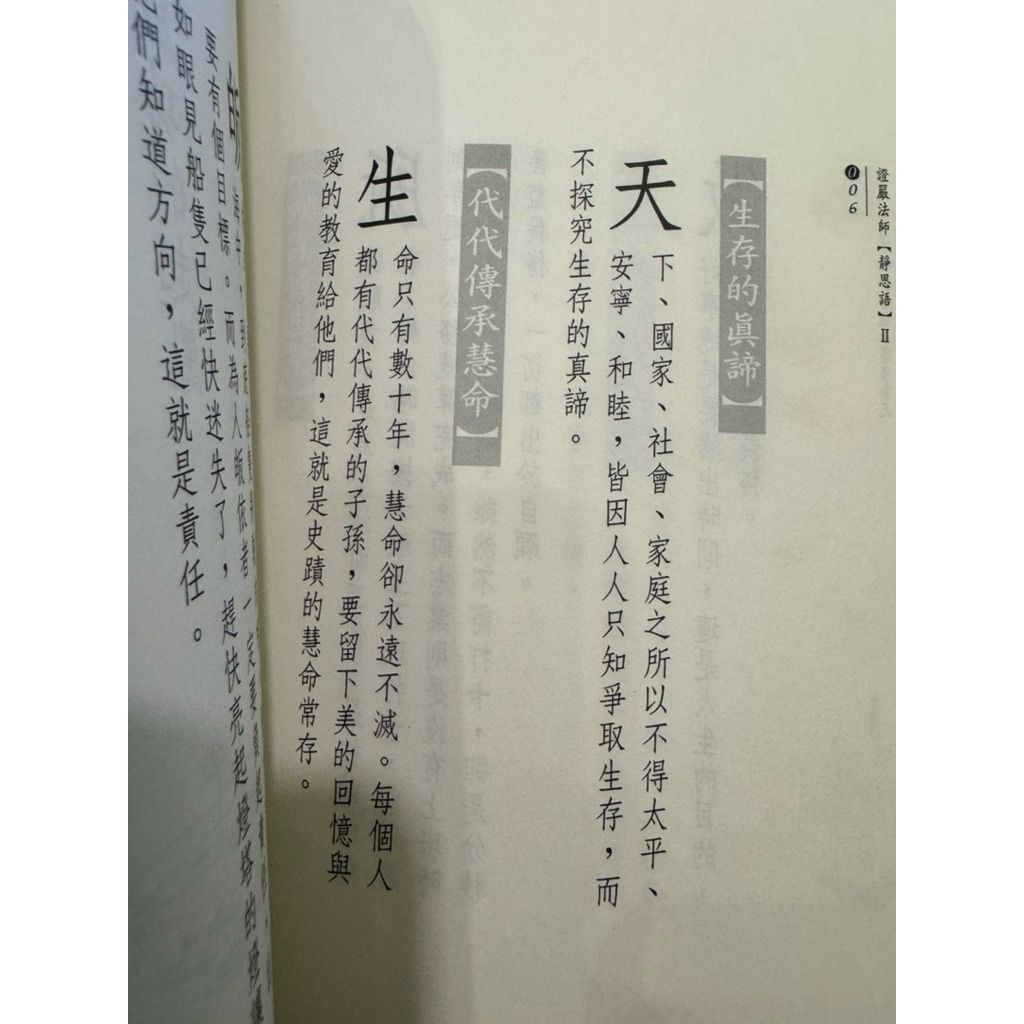 006
證嚴法師【靜思語】Ⅱ
【生存的眞諦】
天下、國家、社會、家庭之所以不得太平、
安寧、和睦，皆因人人只知爭取生存，而
不探究生存的真諦。
【代代傳承慧命】
生命只有數十年，慧命卻永遠不滅。每個人
都有代代傳承的子孫，要留下美的回憶與
愛的教育給他們，這就是史蹟的慧命常存。
要有個目標。而為人師依者一定要
如眼見船隻已經快迷失了，趕快亮起燈塔的燈
們知道方向，這就是責任。